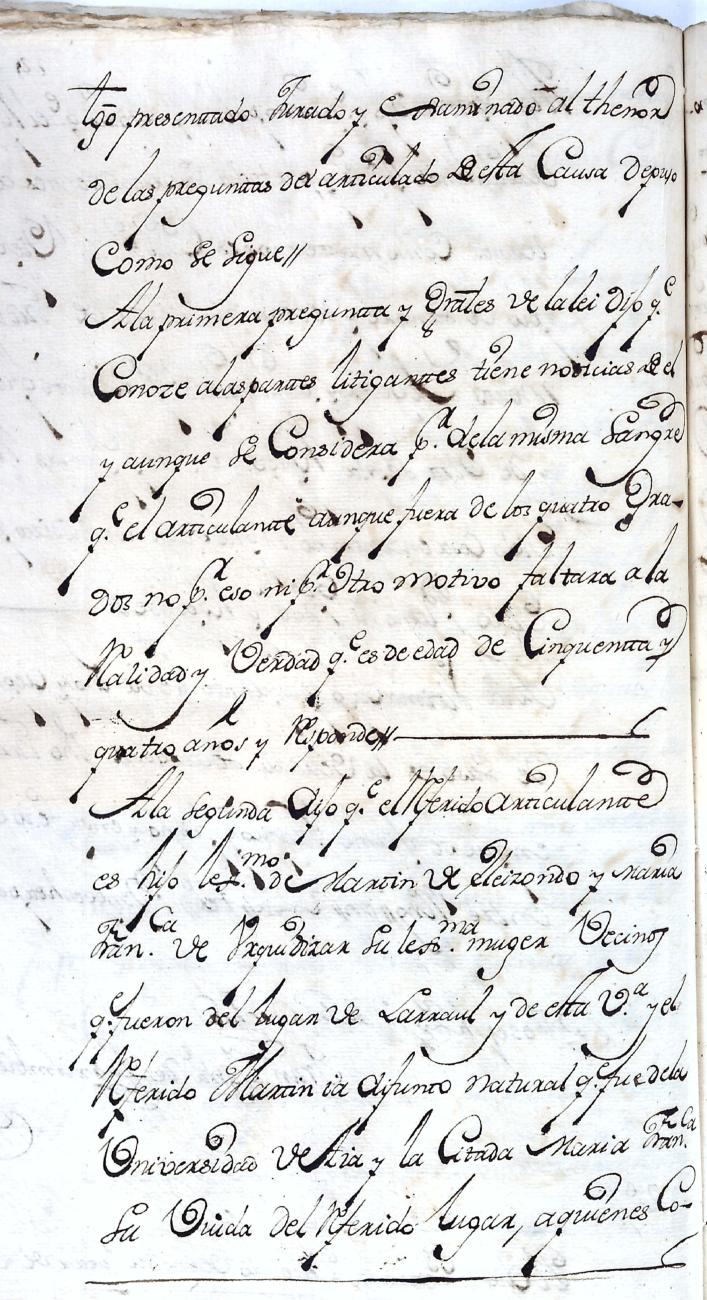 tgo presenttado Jurado y examinado al thenor
de las pregunttas del articulado de esta Causa depuso
Como se sigue//
A la primera preguntta y Grales de la lei dijo q.e
Conoze a las parttes litiganttes tiene noticias de el
y aunque se Considera p.r de la misma sangre
q.e el articulantte aunque fuera de los quatro Gra-
dos no p.r eso ni p.r otro motivo faltara a la
Realidad y Verdad q.e es de edad de Cinquentta y
quatro años y Responde//
A la segunda dijo q.e el Referido articulantte
es hijo lex.mo de Martin de Eleizondo y Maria
Fran.ca de Urquidizar su lex.ma muger Vecinos
q.e fueron del lugar de Larraul y de esta V.a y el
Referido Martin ia difunto natural q.e fue de la
Universidad de Aia y la Citada Maria Fran.ca
su Viuda del Referido lugar, a quienes Co-